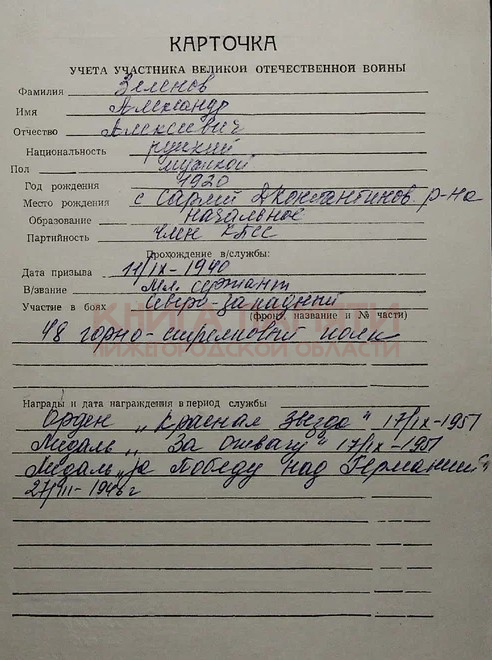 КАРТОЧКА
УЧЕТА УЧАСТНИКА ВЕЛИКОЙ ОТЕЧЕСТВЕННОЙ ВОЙНЫ
Фамилия Зеленов
Имя Александр
Отчество Алексеевич
Национальность русский
Пол мужской
Год рождения 1920
Место рождения с Сарлей Дконстантинов. р-на
Образование Начальное
Партийность член КПСС
Прохождение в/службы:
Дата призыва 11/IX-1940
В/звание Мл. сержант
Участие в боях Северо-западный
(фронт, название и № части)
КНИГА ПАМЯТИ
48 горно-стрелковый полк
НИЖЕГОРОДСКОЙ ОБЛАСТИ
Награды и дата награждения в период службы
Орден „Красная Звезда" 17/IX-1951
Медаль „За отвагу" 17/IX-1951
Медаль „за Победу над Германией"
1946 г